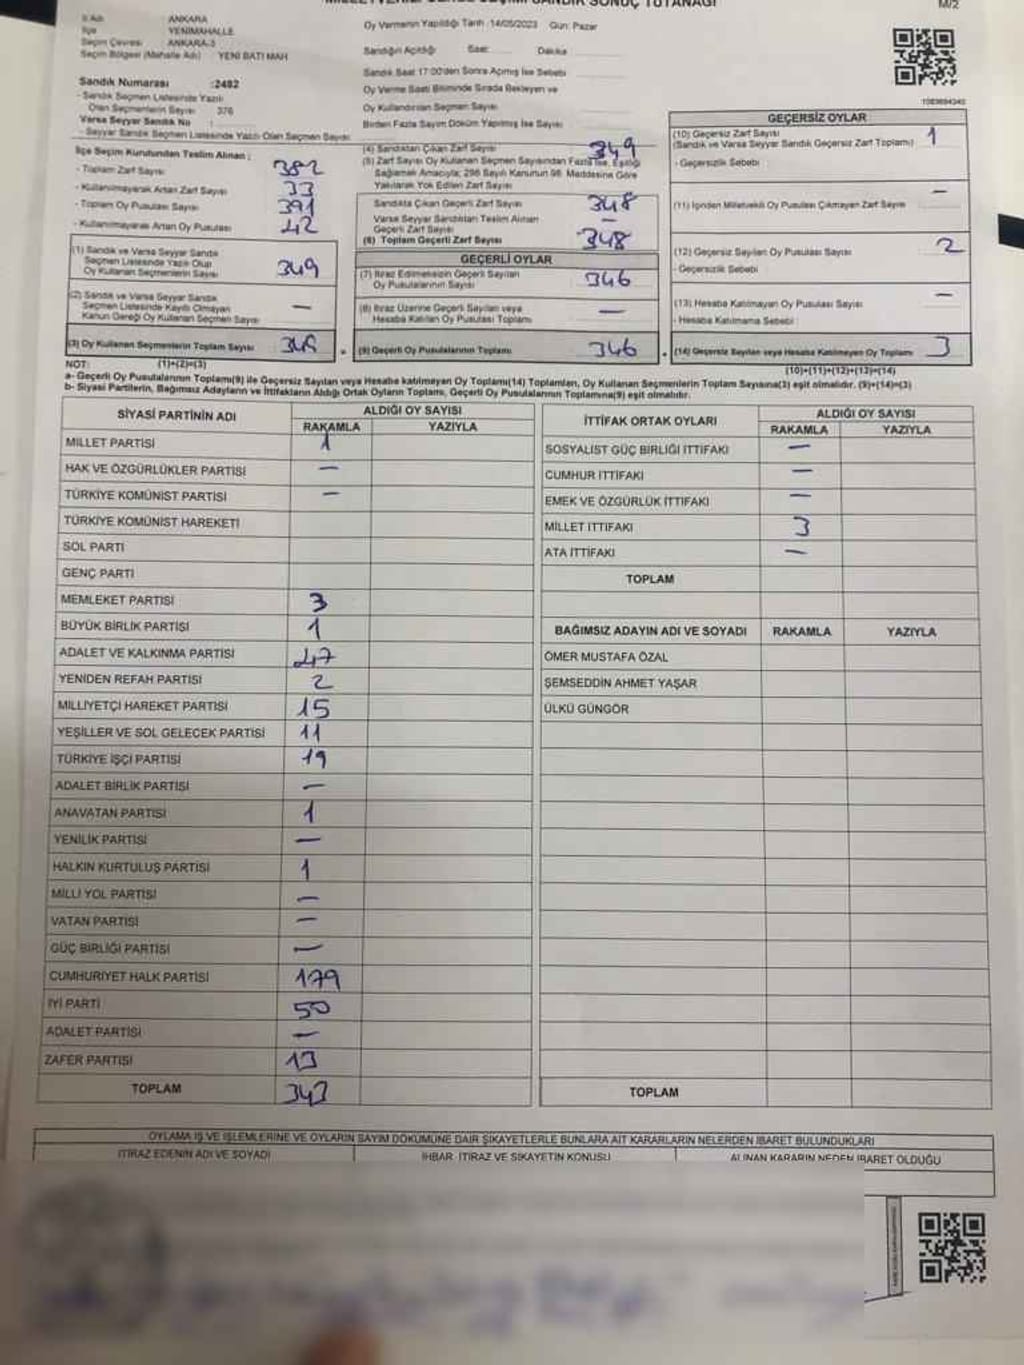 MİLLETVEKİLİ SEÇİMİ SANDIK SONUÇ TUTANAĞI
M/2
İl Adı ANKARA
İlçe YENİMAHALLE
Seçim Çevresi ANKARA-3
Seçim Bölgesi (Mahalle Adı) YENİ BATI MAH
Sandık Numarası :2482
- Sandık Seçmen Listesinde Yazılı
Olan Seçmenlerin Sayısı 376
Varsa Seyyar Sandık No :
- Seyyar Sandık Seçmen Listesinde Yazılı Olan Seçmen Sayısı
Oy Vermenin Yapıldığı Tarih :14/05/2023 Gün: Pazar
Sandığın Açıldığı Saat: Dakika
Sandık Saat 17:00'den Sonra Açılmış İse Sebebi
Oy Verme Saati Bitiminde Sırada Bekleyen ve
Oy Kullandırılan Seçmen Sayısı
Birden Fazla Sayım Döküm Yapılmış İse Sayısı
1083694340
İlçe Seçim Kurulundan Teslim Alınan :
- Toplam Zarf Sayısı 382
- Kullanılmayarak Artan Zarf Sayısı 33
- Toplam Oy Pusulası Sayısı 391
- Kullanılmayarak Artan Oy Pusulası 42
(1) Sandık ve Varsa Seyyar Sandık
Seçmen Listesinde Yazılı Olup
Oy Kullanan Seçmenlerin Sayısı 349
(2) Sandık ve Varsa Seyyar Sandık
Seçmen Listesinde Kayıtlı Olmayan
Kanun Gereği Oy Kullanan Seçmen Sayısı —
(3) Oy Kullanan Seçmenlerin Toplam Sayısı 349
(1)+(2)=(3)
(4) Sandıktan Çıkan Zarf Sayısı 349
(5) Zarf Sayısı Oy Kullanan Seçmen Sayısından Fazla İse, Eşitliği
Sağlamak Amacıyla; 298 Sayılı Kanunun 98. Maddesine Göre
Yakılarak Yok Edilen Zarf Sayısı
Sandıkta Çıkan Geçerli Zarf Sayısı 348
Varsa Seyyar Sandıktan Teslim Alınan
Geçerli Zarf Sayısı —
(6) Toplam Geçerli Zarf Sayısı 348
GEÇERLİ OYLAR
(7) İtiraz Edilmeksizin Geçerli Sayılan
Oy Pusulalarının Sayısı 346
(8) İtiraz Üzerine Geçerli Sayılan veya
Hesaba Katılan Oy Pusulası Toplamı —
(9) Geçerli Oy Pusulalarının Toplamı 346
GEÇERSİZ OYLAR
(10) Geçersiz Zarf Sayısı
(Sandık ve Varsa Seyyar Sandık Geçersiz Zarf Toplamı) 1
- Geçersizlik Sebebi :
(11) İçinden Milletvekili Oy Pusulası Çıkmayan Zarf Sayısı —
(12) Geçersiz Sayılan Oy Pusulası Sayısı 2
- Geçersizlik Sebebi :
(13) Hesaba Katılmayan Oy Pusulası Sayısı —
- Hesaba Katılmama Sebebi :
(14) Geçersiz Sayılan veya Hesaba Katılmayan Oy Toplamı 3
(10)+(11)+(12)+(13)=(14)
NOT:
a- Geçerli Oy Pusulalarının Toplamı(9) ile Geçersiz Sayılan veya Hesaba katılmayan Oy Toplamı(14) Toplamları, Oy Kullanan Seçmenlerin Toplam Sayısına(3) eşit olmalıdır. (9)+(14)=(3)
b- Siyasi Partilerin, Bağımsız Adayların ve İttifakların Aldığı Ortak Oyların Toplamı, Geçerli Oy Pusulalarının Toplamına(9) eşit olmalıdır.
SİYASİ PARTİNİN ADI ALDIĞI OY SAYISI
RAKAMLA YAZIYLA
MİLLET PARTİSİ 1
HAK VE ÖZGÜRLÜKLER PARTİSİ —
TÜRKİYE KOMÜNİST PARTİSİ —
TÜRKİYE KOMÜNİST HAREKETİ
SOL PARTİ
GENÇ PARTİ
MEMLEKET PARTİSİ 3
BÜYÜK BİRLİK PARTİSİ 1
ADALET VE KALKINMA PARTİSİ 47
YENİDEN REFAH PARTİSİ 2
MİLLİYETÇİ HAREKET PARTİSİ 15
YEŞİLLER VE SOL GELECEK PARTİSİ 11
TÜRKİYE İŞÇİ PARTİSİ 19
ADALET BİRLİK PARTİSİ —
ANAVATAN PARTİSİ 1
YENİLİK PARTİSİ —
HALKIN KURTULUŞ PARTİSİ 1
MİLLİ YOL PARTİSİ —
VATAN PARTİSİ —
GÜÇ BİRLİĞİ PARTİSİ —
CUMHURİYET HALK PARTİSİ 179
İYİ PARTİ 50
ADALET PARTİSİ —
ZAFER PARTİSİ 13
TOPLAM 343
İTTİFAK ORTAK OYLARI ALDIĞI OY SAYISI
RAKAMLA YAZIYLA
SOSYALİST GÜÇ BİRLİĞİ İTTİFAKI —
CUMHUR İTTİFAKI —
EMEK VE ÖZGÜRLÜK İTTİFAKI —
MİLLET İTTİFAKI 3
ATA İTTİFAKI —
TOPLAM
BAĞIMSIZ ADAYIN ADI VE SOYADI RAKAMLA YAZIYLA
ÖMER MUSTAFA ÖZAL
ŞEMSEDDİN AHMET YAŞAR
ÜLKÜ GÜNGÖR
TOPLAM
OYLAMA İŞ VE İŞLEMLERİNE VE OYLARIN SAYIM DÖKÜMÜNE DAİR ŞİKAYETLERLE BUNLARA AİT KARARLARIN NELERDEN İBARET BULUNDUKLARI
İTİRAZ EDENİN ADI VE SOYADI İHBAR, İTİRAZ VE ŞİKAYETİN KONUSU ALINAN KARARIN NEDEN İBARET OLDUĞU